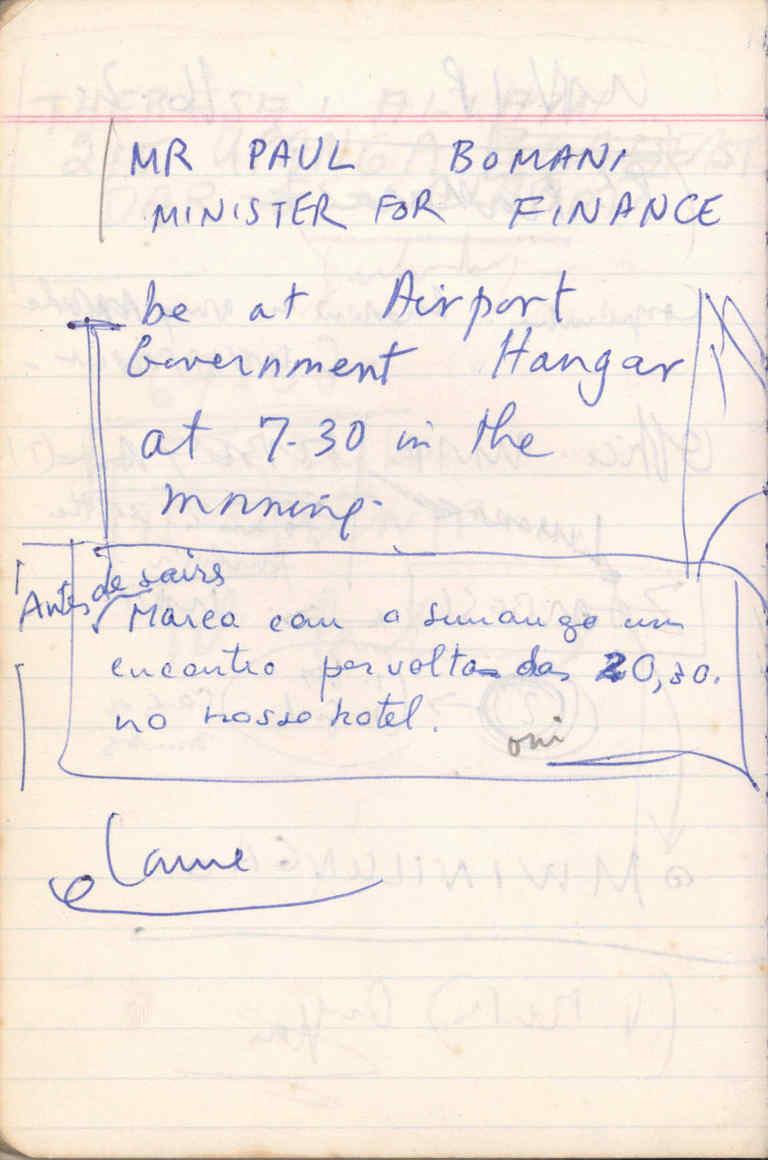 MR PAUL BOMANI
MINISTER FOR FINANCE
be at Airport
Government Hangar
at 7-30 in the
morning.
Antes de sairs
Marca com o Simango um
encontro por volta das 20,30.
no nosso hotel.